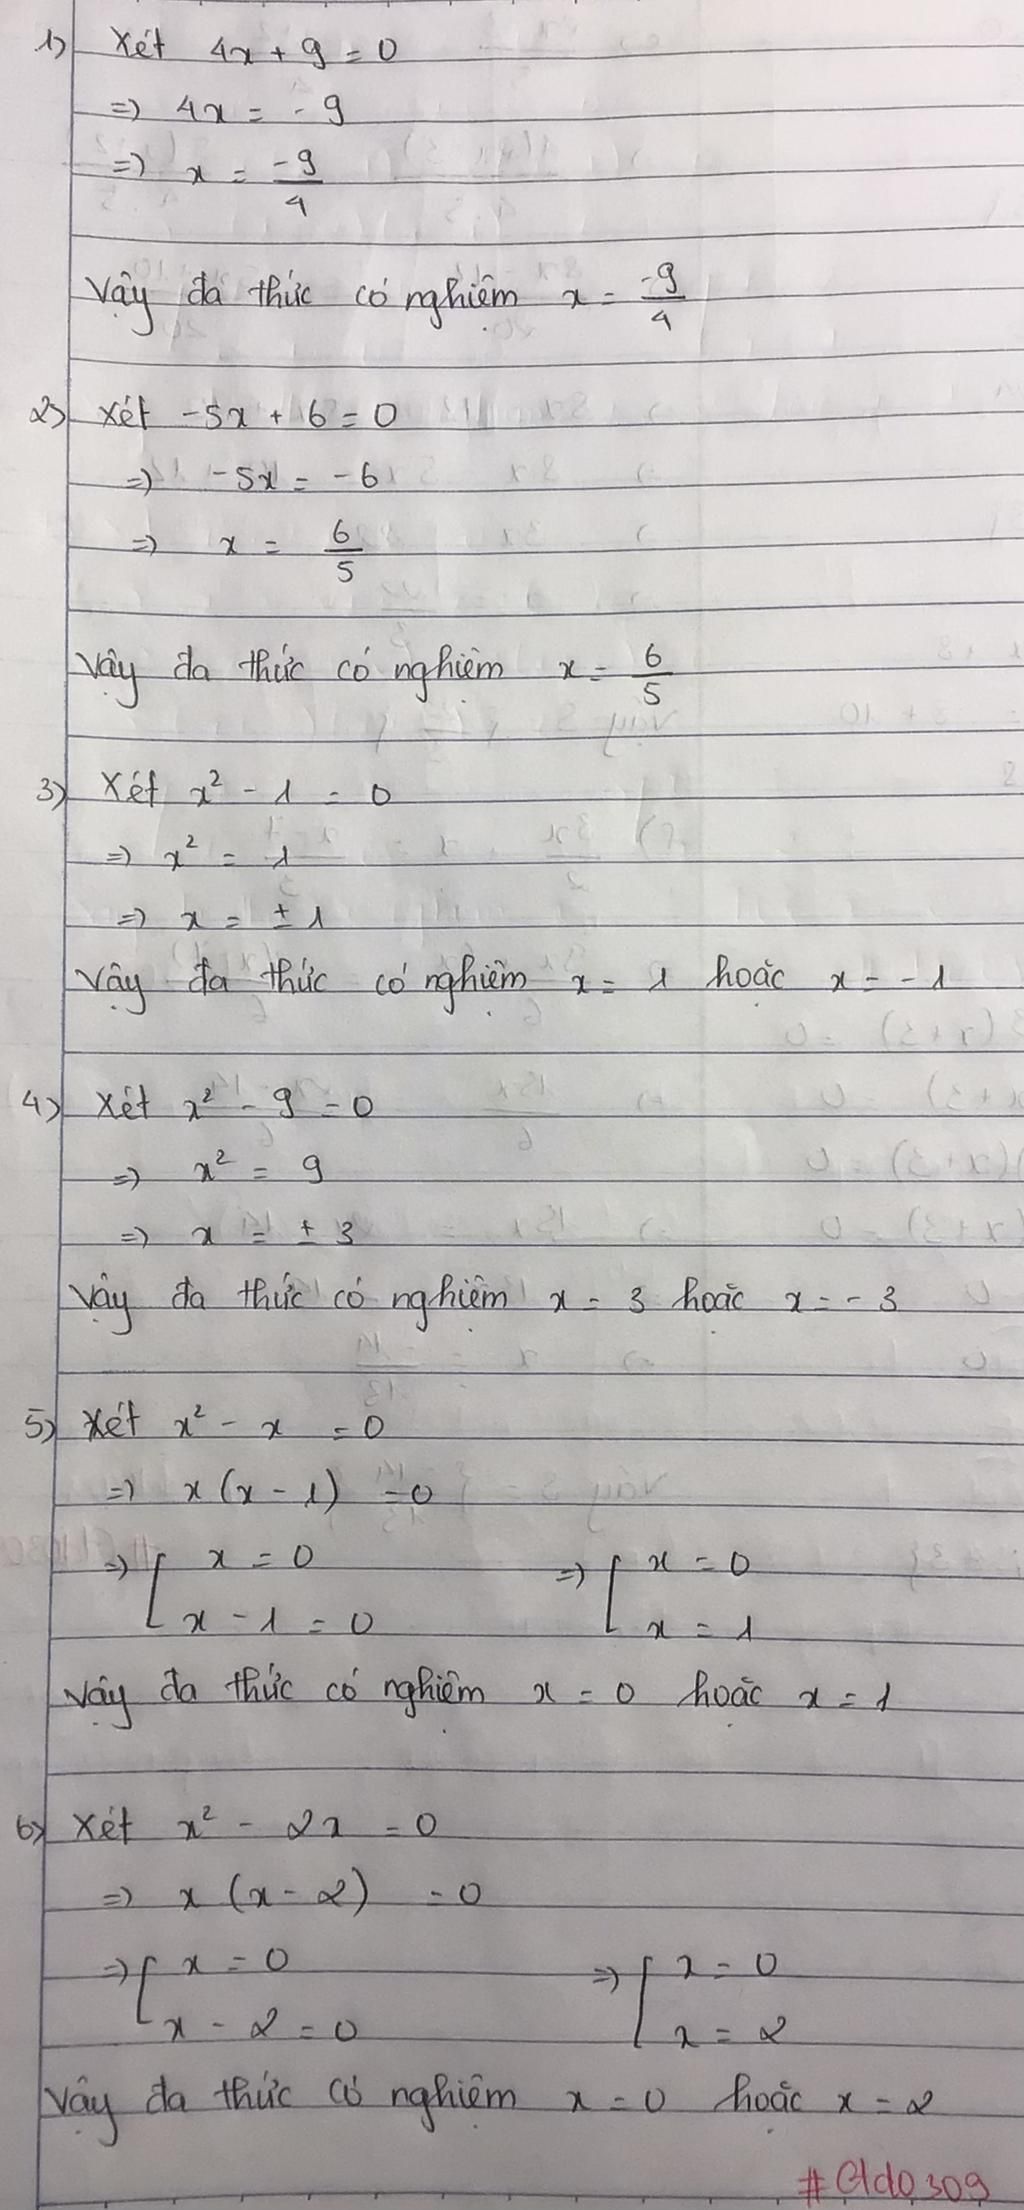 1) Xét 4x + 9 = 0
=> 4x = -9
=> x = -9/4
Vậy đa thức có nghiệm x = -9/4
2) Xét -5x + 6 = 0
=> -5x = -6
=> x = 6/5
Vậy đa thức có nghiệm x = 6/5
3) Xét x² - 1 = 0
=> x² = 1
=> x = ± 1
Vậy đa thức có nghiệm x = 1 hoặc x = -1
4) Xét x² - 9 = 0
=> x² = 9
=> x = ± 3
Vậy đa thức có nghiệm x = 3 hoặc x = -3
5) Xét x² - x = 0
=> x(x - 1) = 0
=> [ x = 0 => [ x = 0
x - 1 = 0 x = 1
Vậy đa thức có nghiệm x = 0 hoặc x = 1
6) Xét x² - 2x = 0
=> x (x - 2) = 0
=> [ x = 0 => [ x = 0
x - 2 = 0 x = 2
Vậy đa thức có nghiệm x = 0 hoặc x = 2